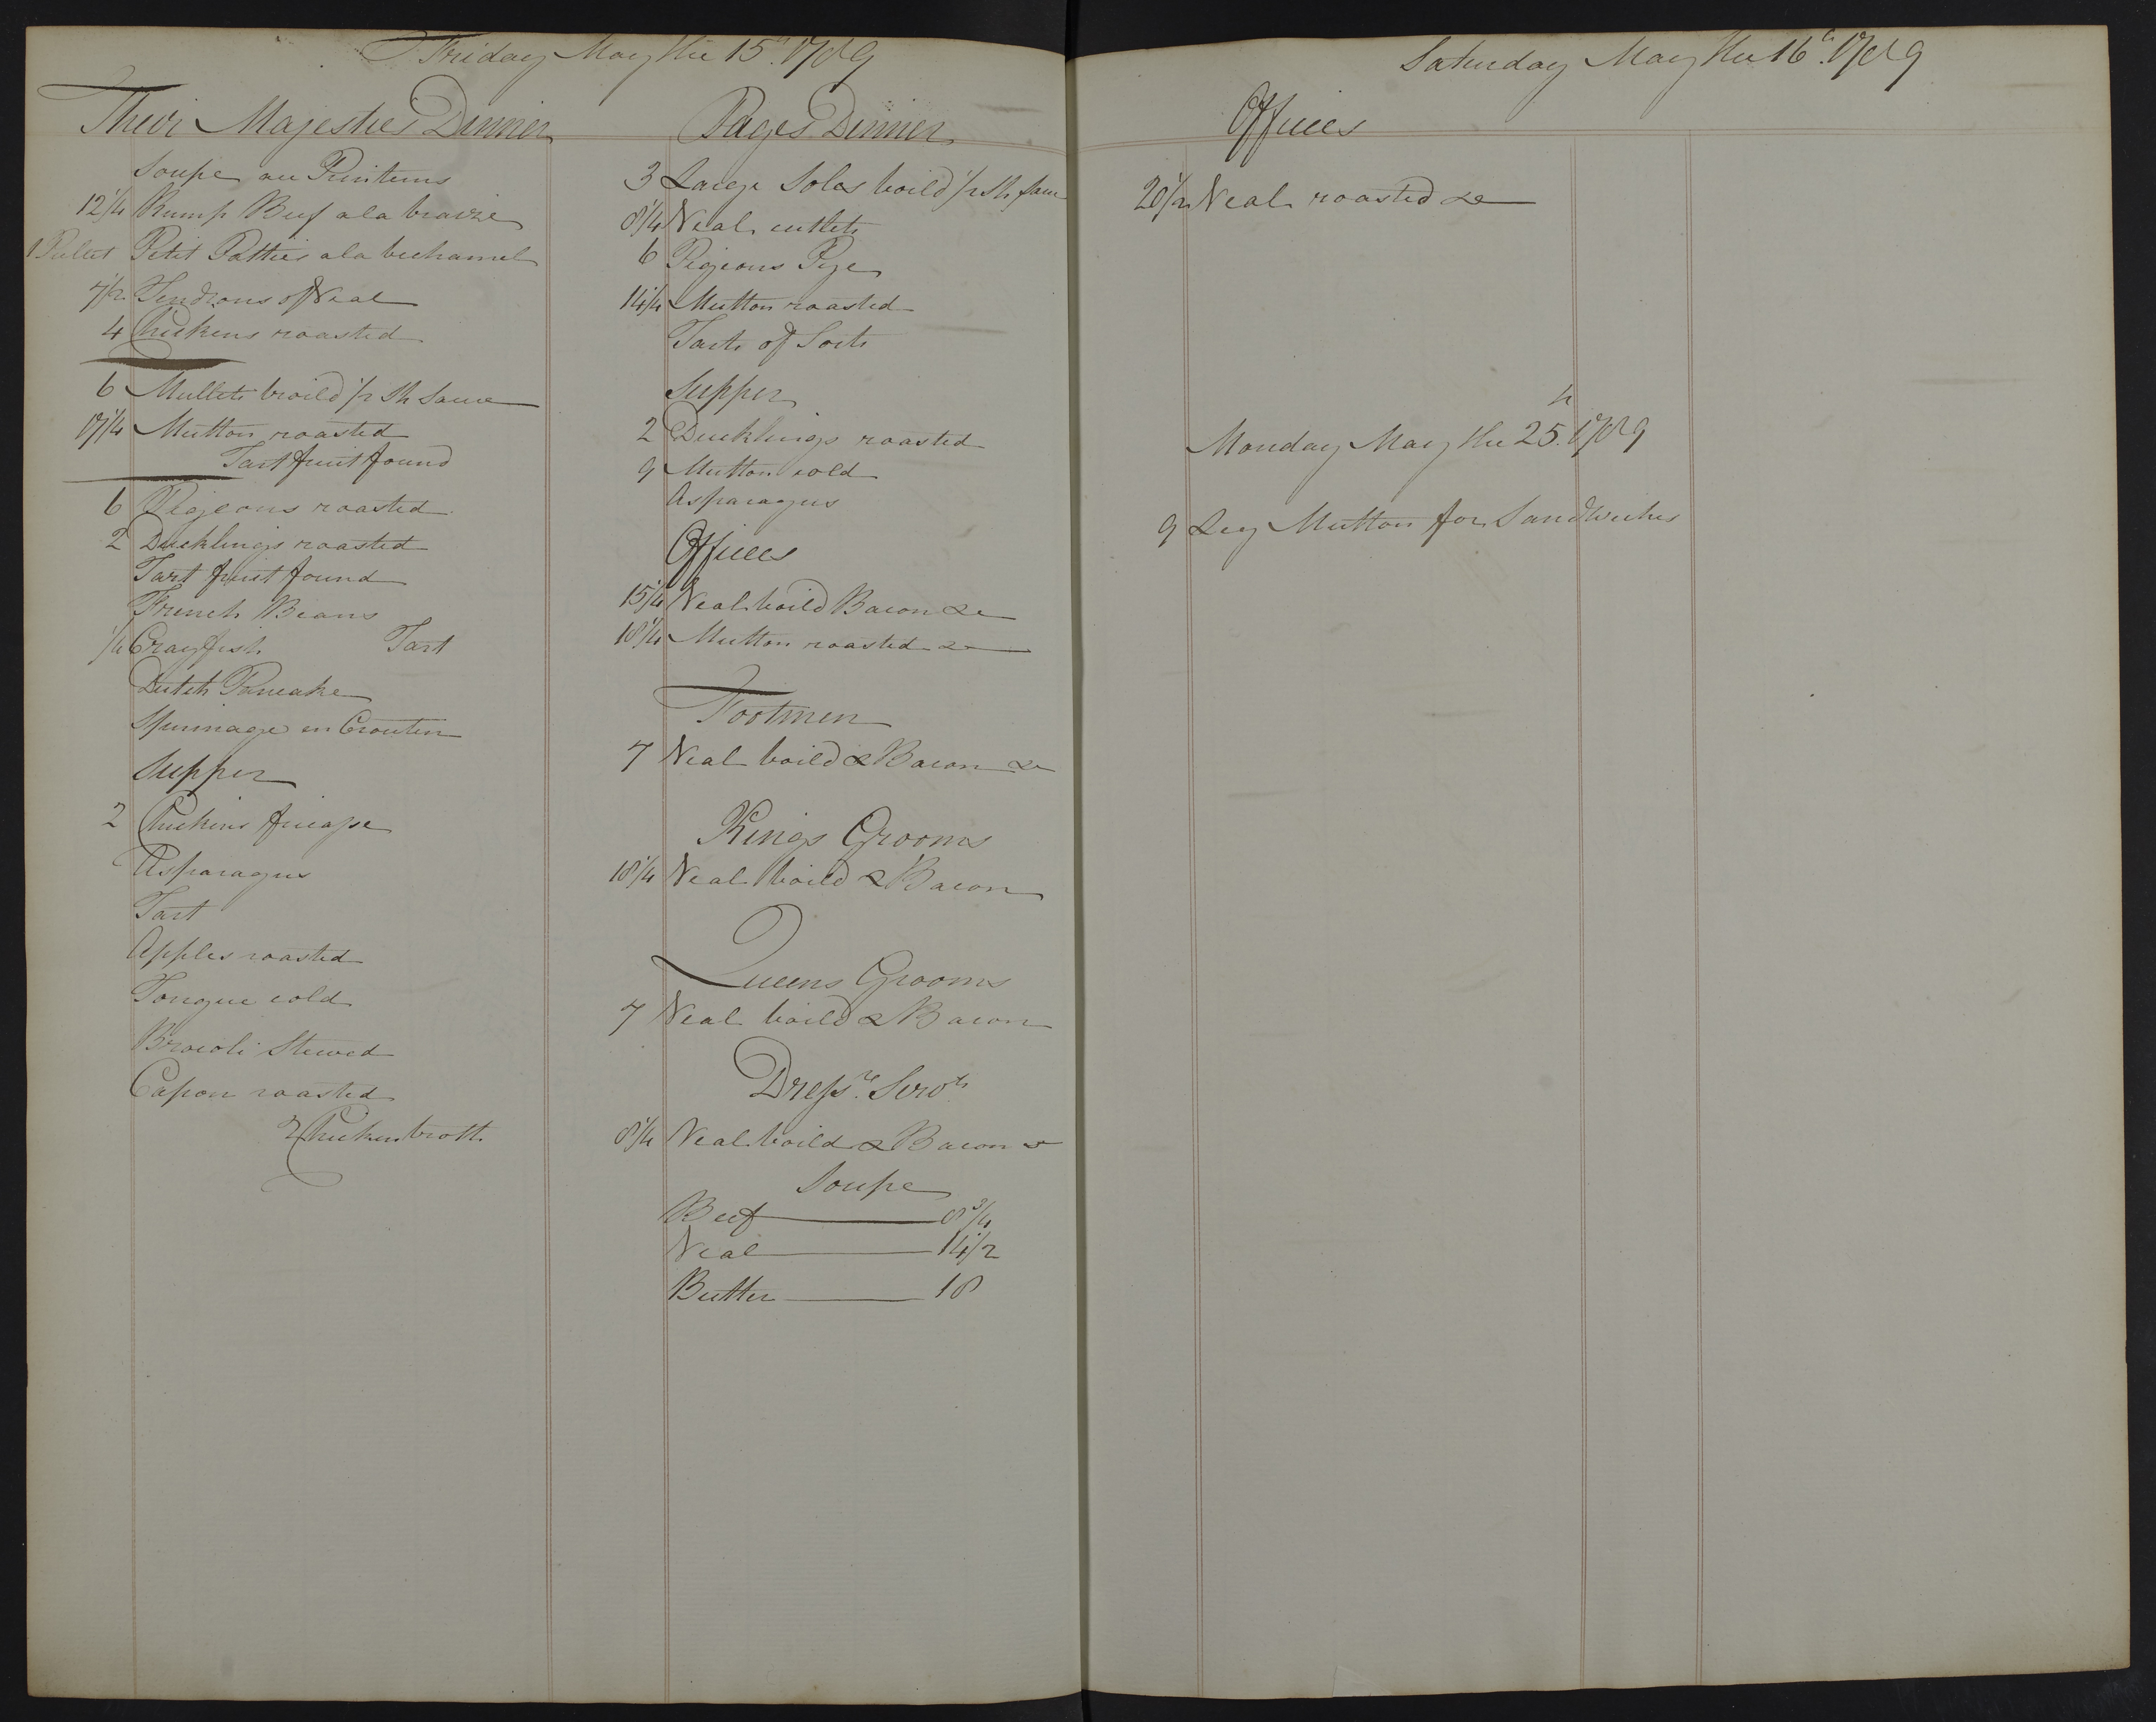 Friday May the 15th. 1789
Their Majesties Dinner
Soupe au Printems
12 1/4 Rump Beef a la braize
1 Pullet Petit Patties a la bechamel
7 1/2 Tendrons of Veal
4 Chickens roasted
6 Mullets broild 1/2 Sh Sauce
17 1/4 Mutton roasted
Tart fruit found
6 Pigeons roasted
2 Ducklings roasted
Tart fruit found
French Beans
1/4 Crayfish Tart
Dutch Pancake
Spinnage en Crouten
Supper
2 Chickens fricasse
Asparagus
Tart
Apples roasted
Tongue cold
Brocoli Stewed
Capon roasted
2 Chicken broth
Pages Dinner
3 Large Soles boild 1/2 Sh Sau
8 1/4 Veal cutlets
6 Pigeons Pye
14 1/4 Mutton roasted
Tarts of Sorts
Supper
2 Ducklings roasted
9 Mutton cold
Asparagus
Offices
15 1/4 Veal boild Bacon &c
18 1/4 Mutton roasted &c
Footmen
7 Veal boild & Bacon &c
Kings Grooms
18 1/4 Veal boild & Bacon
Queens Grooms
7 Veal boild & Bacon
Dressrs. Servts
8 1/4 Veal boild & Bacon &c
Soupe
Beef 8 3/4
Veal 14 1/2
Butter 18
Saturday May the 16th. 1789
Offices
20 1/2 Veal roasted &c
Monday May the 25th. 1789
9 Leg Mutton for Sandwiches